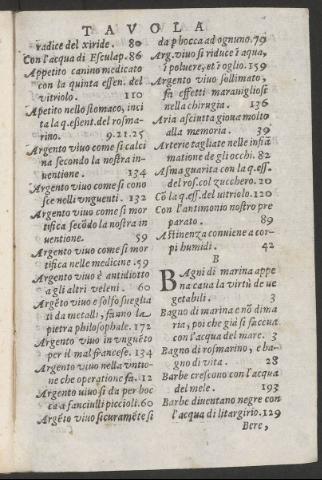 TAVOLA
radice del xiride. 80
Con l'acqua di Esculap. 86
Appetito canino medicato
con la quinta essen. del
vitriolo. 110
Apetito nello stomaco, inci
ta la q. essent. del rosma-
rino. 9.21.25
Argento viuo come si calci
na secondo la nostra in-
uentione. 134
Argento viuo come si cono
sce nelli vnguenti. 132
Argento viuo come si mor
tifica secōdo la nostra in
uentione. 59
Argento viuo come si mor-
tifica nelle medicine. 59
Argento viuo è antidiotto
a gli altri veleni. 60
Argēto viuo e solfo sueglia
ti da metalli, fanno la
pietra philosophale. 172
Argento viuo in vnguēto
per il mal francese. 134
Argento viuo nella vntio-
ne che operatione fa. 12
Argento uiuo si da per boc
ca a fanciulli piccioli. 60
Argēto viuo sicuramēte si
da p bocca ad ognuno. 79
Arg. viuo si riduce ī aqua,
ī poluere, et ī oglio. 159
Argento viuo sollimato,
fa effetti marauigliosi
nella chirugia. 136
Aria asciutta gioua molto
alla memoria. 39
Arterie tagliate nelle infiā
matione de gli occhi. 82
Asma guarita con la q. ess.
del ros. col zucchero. 20
Cō la q. ess. del vitriolo. 120
Con l'antimonio nostro pre
parato. 89
Astinenza conuiene a cor-
pi humidi. 42
B
BAgni di marina appe
na caua la virtù de ue
getabili. 3
Bagno di marina e nō di ma
ria, poi che già si faceua
con l'acqua del mare. 3
Bagno di rosmarino, e ba-
gno di vita. 28
Barbe crescono con l'acqua
del mele. 193
Barbe diuentano negre con
l'acqua di litargirio. 129
Bere,